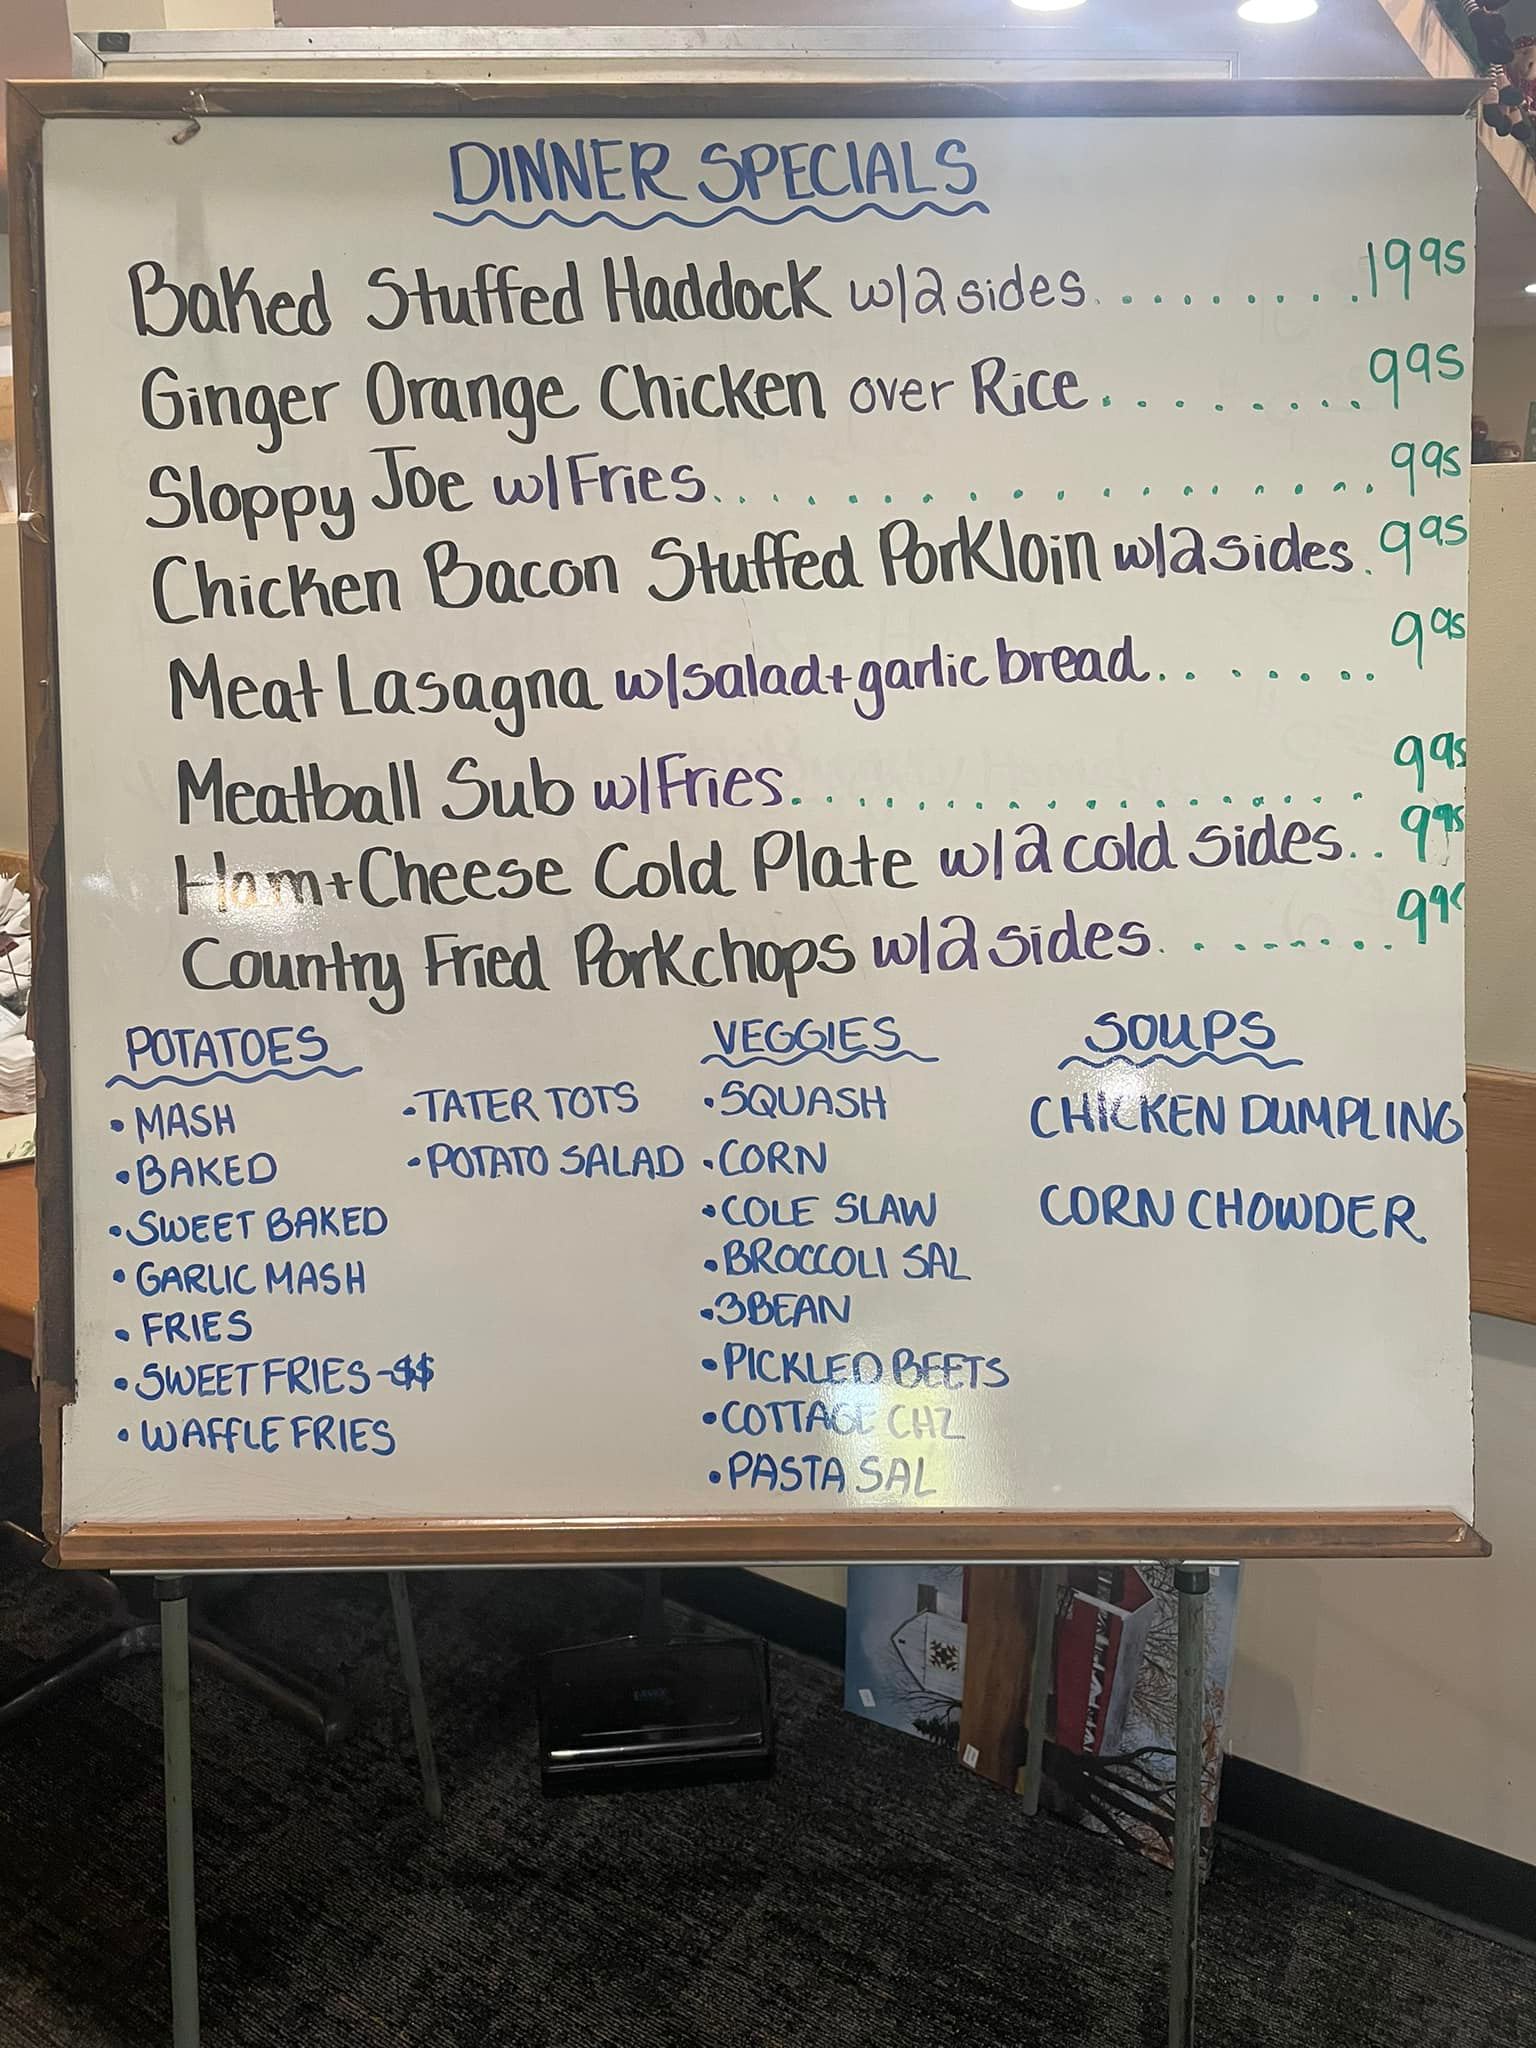 DINNER SPECIALS
Baked Stuffed Haddock w/2 sides..........19 95
Ginger Orange Chicken over Rice........9 95
Sloppy Joe w/Fries...................9 95
Chicken Bacon Stuffed Porkloin w/2 sides.9 95
Meat Lasagna w/salad+garlic bread.......9 95
Meatball Sub w/Fries..................9 95
Ham+Cheese Cold Plate w/2 cold sides..9 95
Country Fried Porkchops w/2 sides........9 9
POTATOES
•MASH
•BAKED
•SWEET BAKED
•GARLIC MASH
•FRIES
•SWEET FRIES-$$
•WAFFLE FRIES
•TATER TOTS
•POTATO SALAD
VEGGIES
•SQUASH
•CORN
•COLE SLAW
•BROCCOLI SAL
•3BEAN
•PICKLED BEETS
•COTTAGE CHZ
•PASTA SAL
SOUPS
CHICKEN DUMPLING
CORN CHOWDER